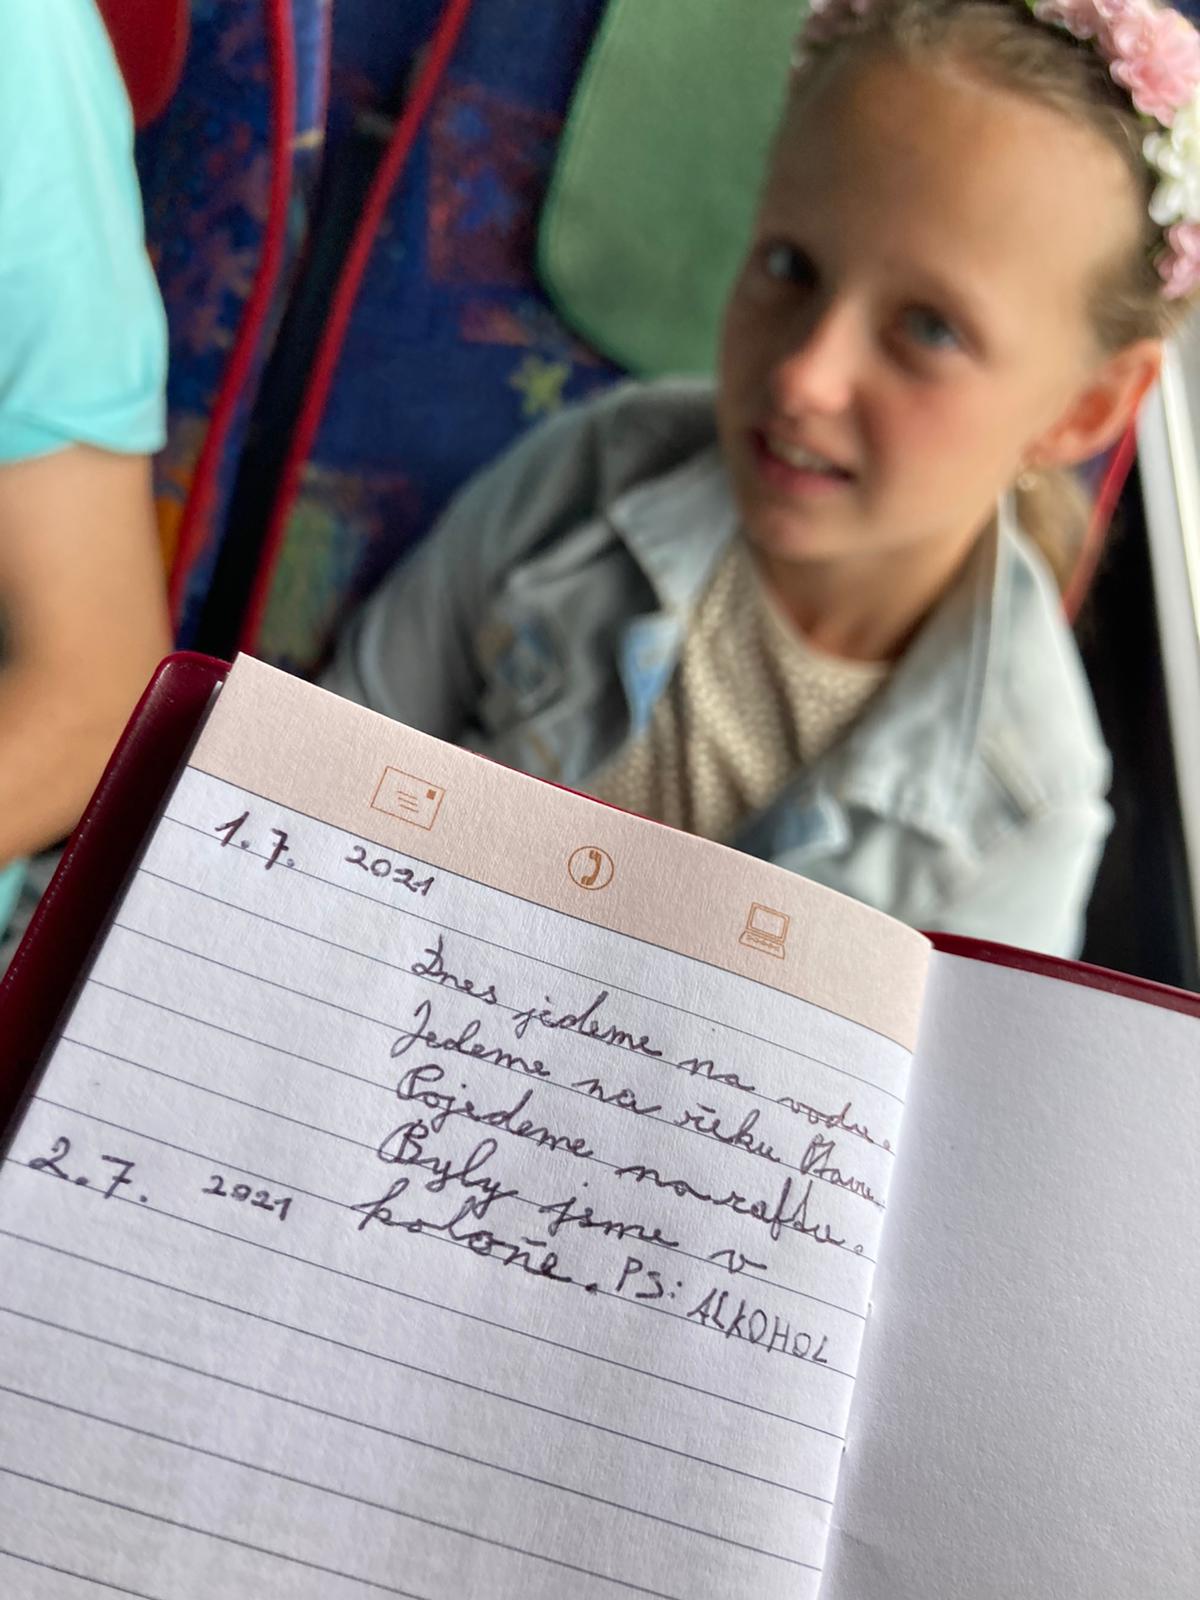 1.7. 2021
Dnes jedeme na vodu.
Jedeme na řeku
Pojedeme na raftu.
Byly jsme v
2.7. 2021 koloňe. PS: ALKOHOL